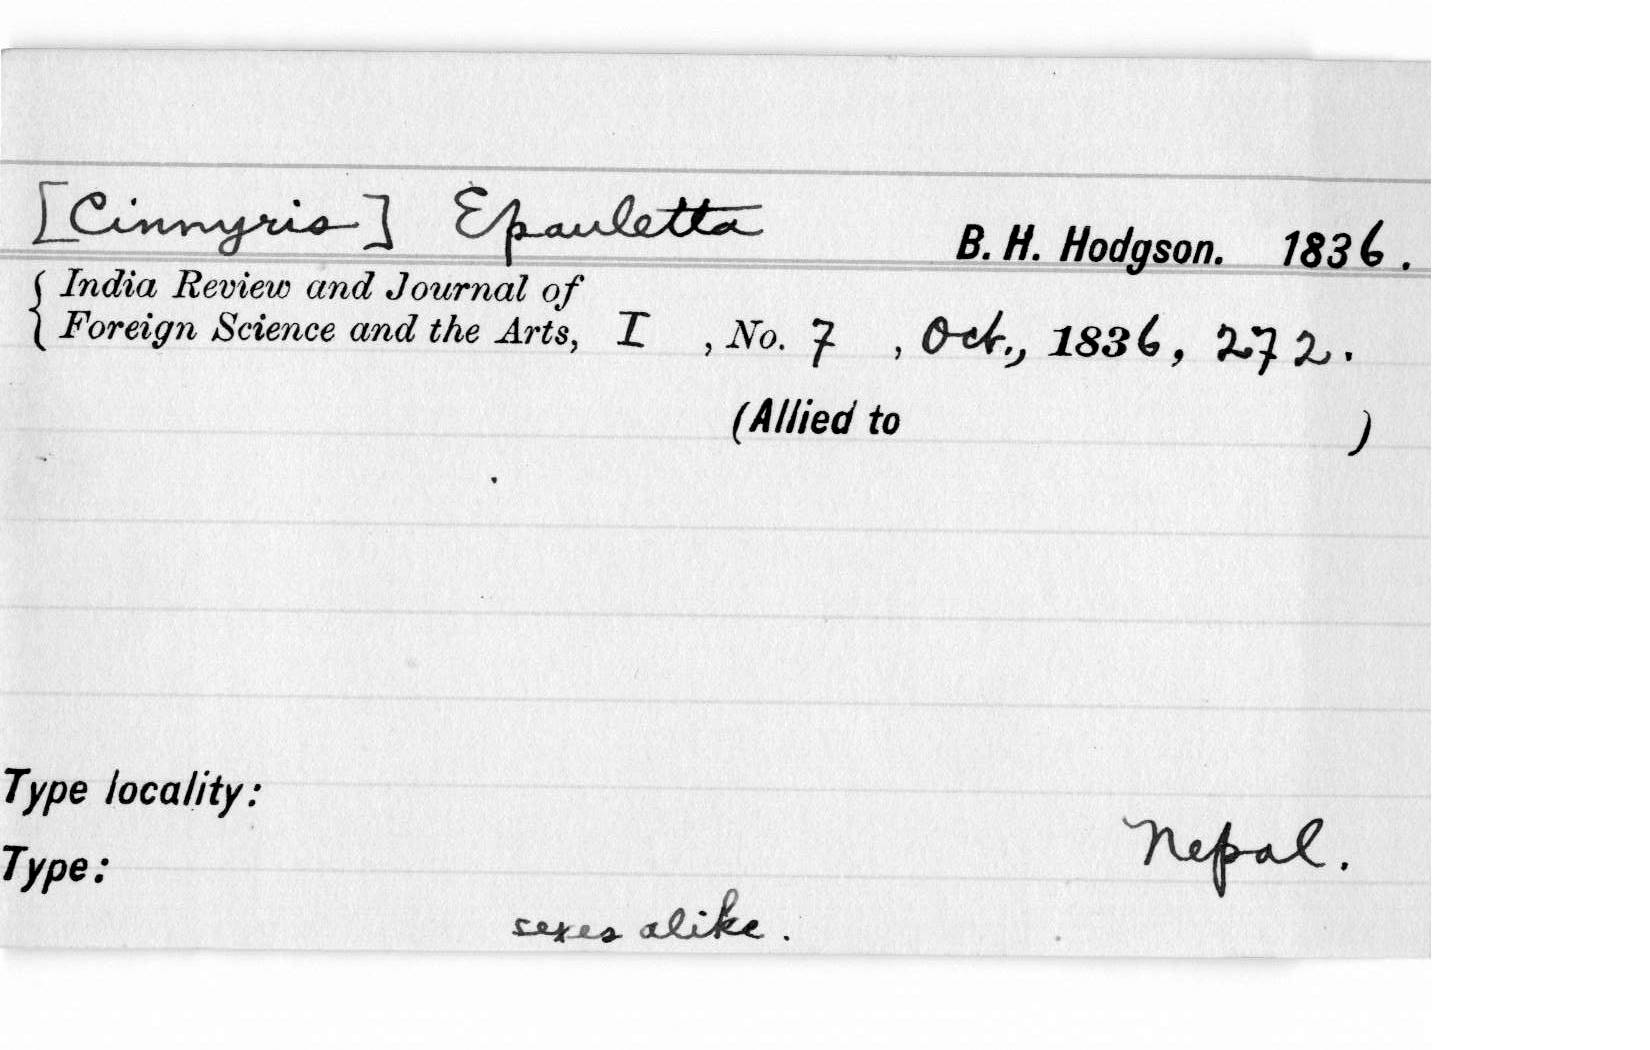 [Cinnyris] Epauletta B. H. Hodgson. 1836.
India Review and Journal of
Foreign Science and the Arts, I , No. 7 , Oct., 1836, 272.
(Allied to )
Type locality:
Nepal.
Type:
sexes alike.